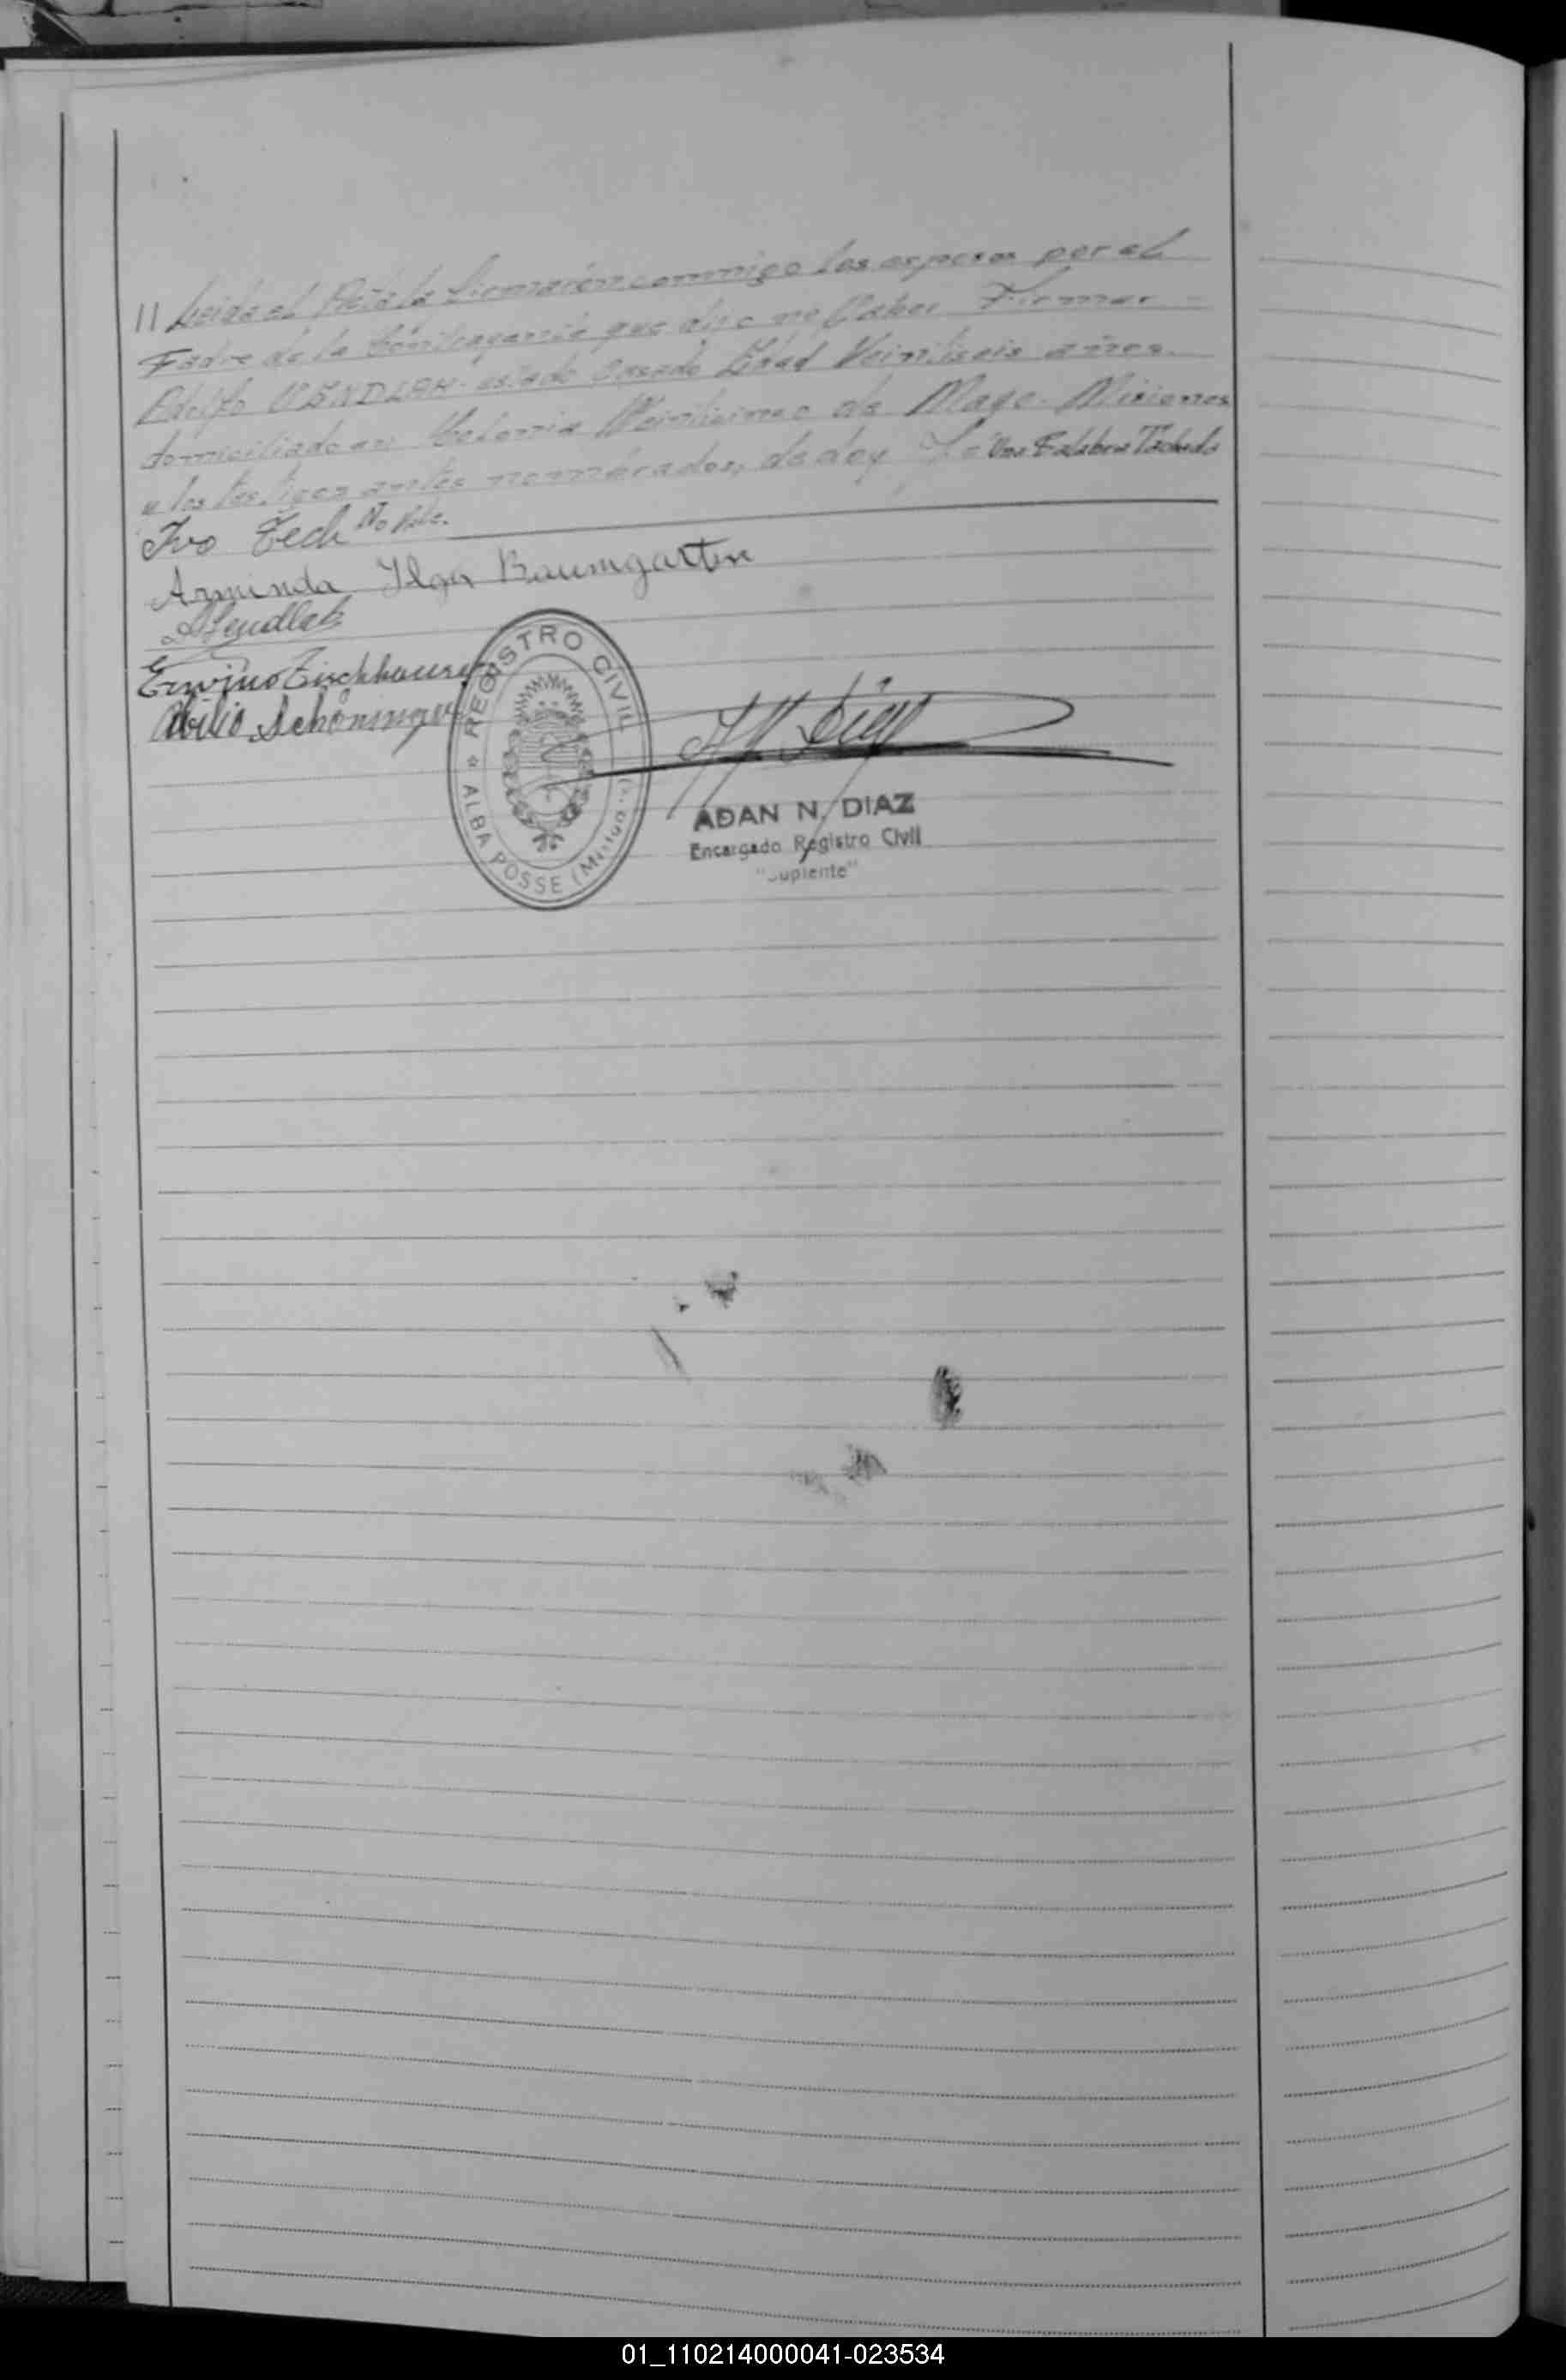 11 Leida el Acta la Firmaron conmigo los esposos por el
Padre de la Contrayente que dijo no Saber Firmar =
Adolfo WENDLAH - estado Casado Edad Veintiseis años
domiciliado en Colonia Veinticinco de Mayo - Misiones
y los testigos antes nombrados, de doy Fe Una Palabra Tachada
No Vale.
Ivo Tech
Arminda Ilga Baumgarten
Erwino
Abilio Schöninger
REGISTRO CIVIL
ALBA POSSE
ADAN N. DIAZ
Encargado Registro Civil
"Suplente"
01_110214000041-023534